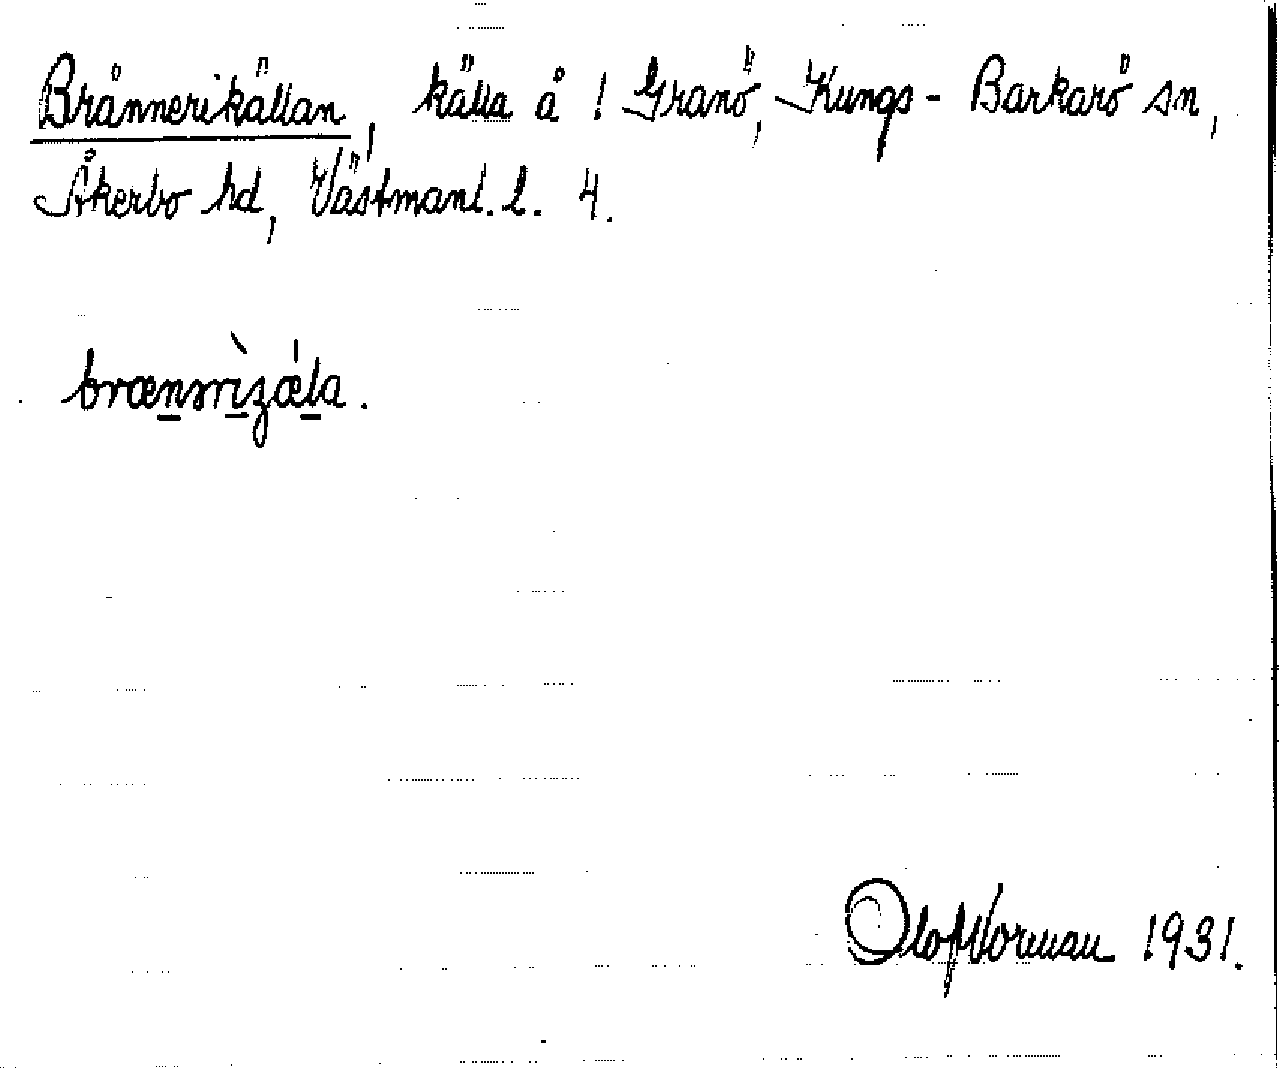 Brännerikällan, källa å ! Granö, Kungs-Barkarö sn,
Åkerbo hd, Västmanl. l. 4.
Olof Norman 1931.